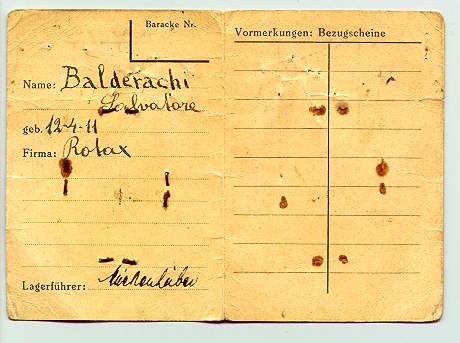 Baracke Nr.
Name: Balderachi
Salvatore
geb. 12-4-11
Firma: Rotax
Lagerführer:
Vormerkungen: Bezugscheine